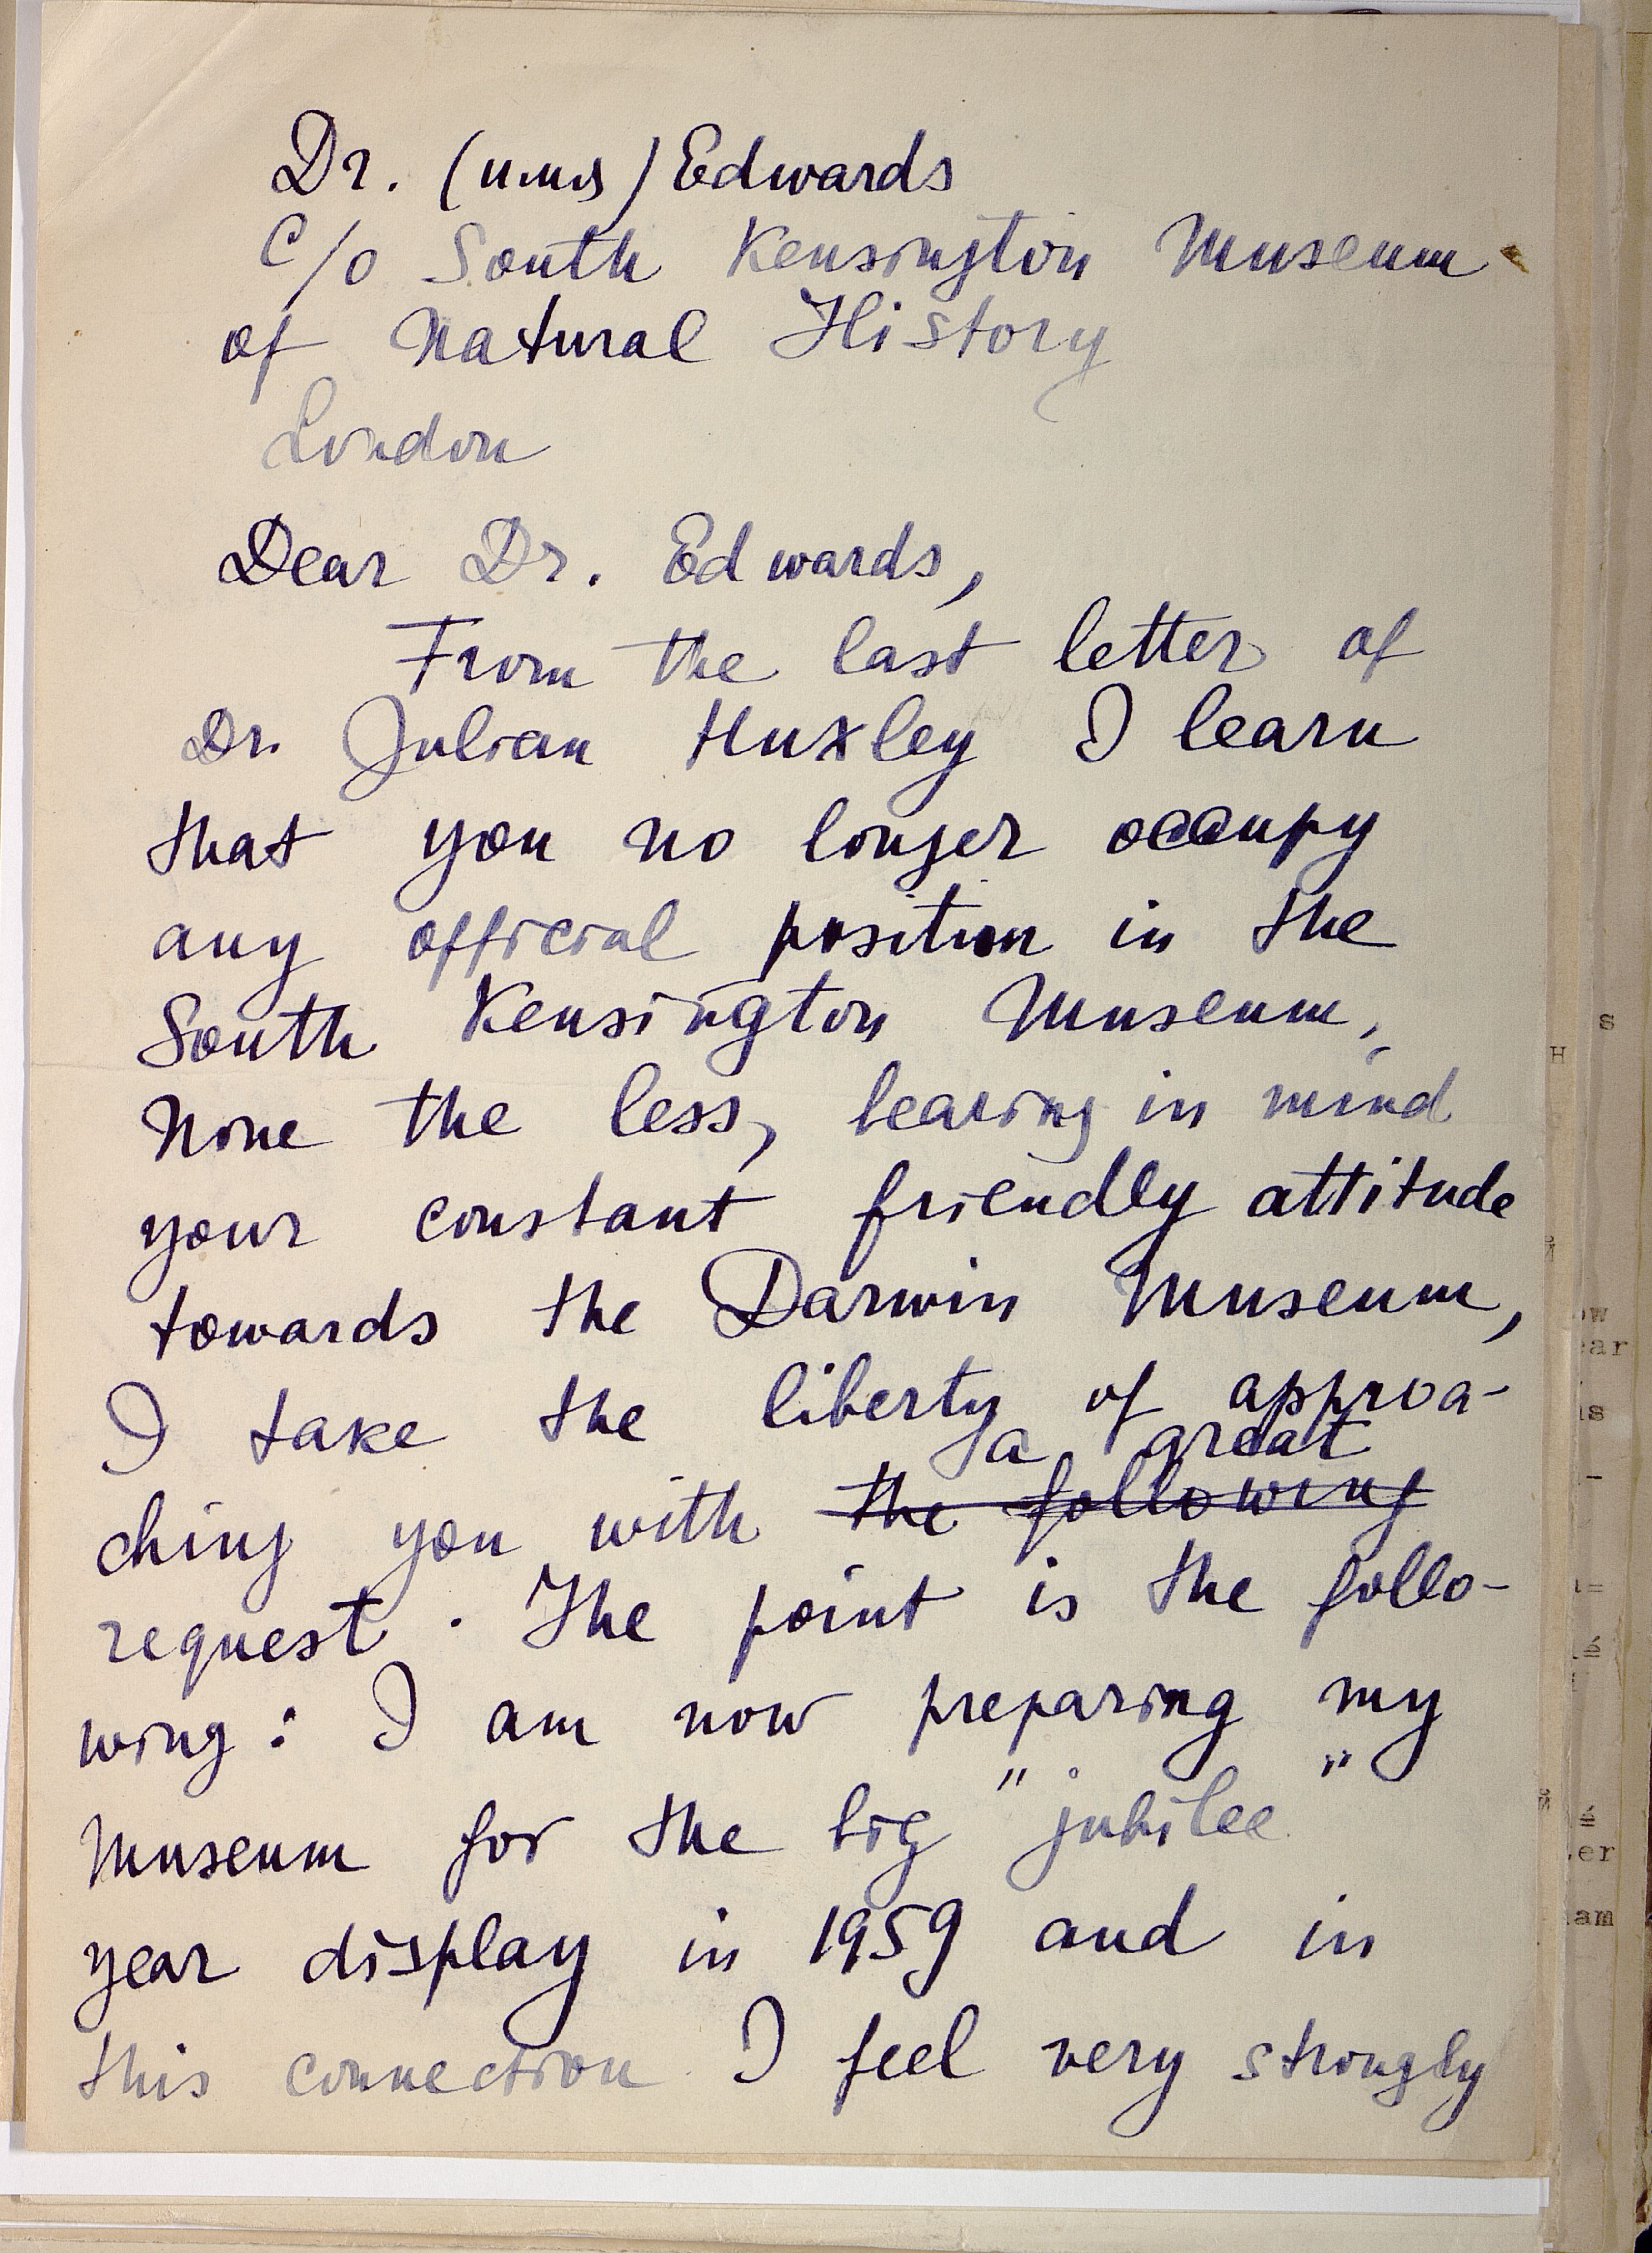 Dr. (имя) Edwards
c/o South Kensington Museum
of Natural History
London
Dear Dr. Edwards,
From the last letter of
Dr. Julian Huxley I learn
that you no longer occupy
any official position in the
South Kensington Museum,
None the less, bearing in mind
your constant friendly attitude
towards the Darwin Museum,
I take the liberty of approa-
a great
ching you with the following
request. The point is the follo-
wing: I am now preparing my
Museum for the big "jubilee"
year display in 1959 and in
this connection I feel very strongly